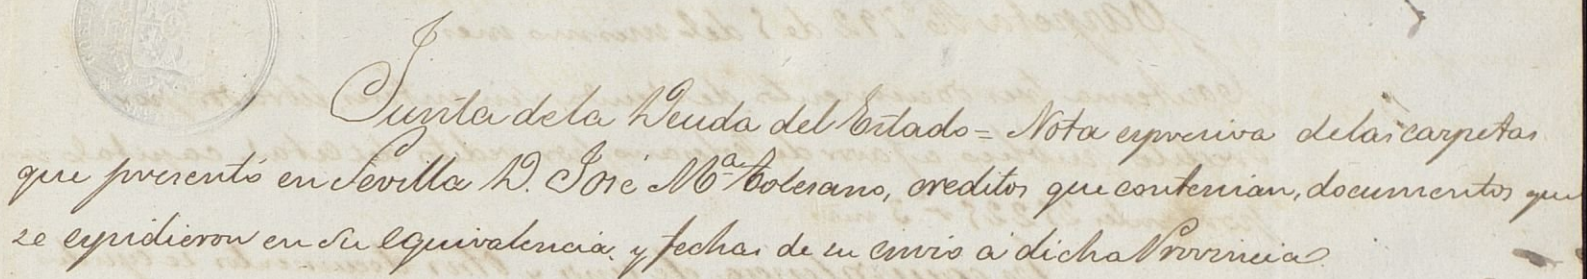 Junta de la Deuda del Estado = Nota espresiva de las carpetas
que presentó en Sevilla D. José Mª Tolesano, creditos que contenian, documentos que
se espidieron en su equivalencia, y fechas de su envio a dicha Provincia.